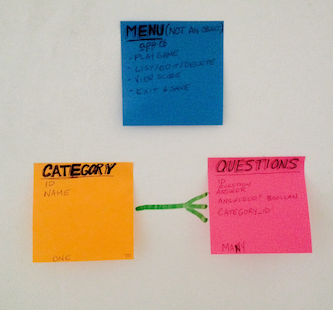 MENU (NOT AN OBJECT)
- PLAY GAME
- LIST/EDIT/DELETE
- VIEW SCORE
- EXIT GAME
CATEGORY
ID
NAME
ONE
QUESTIONS
ID
QUESTION
ANSWER
ANSWERED? BOOLEAN
CATEGORY_ID
MANY